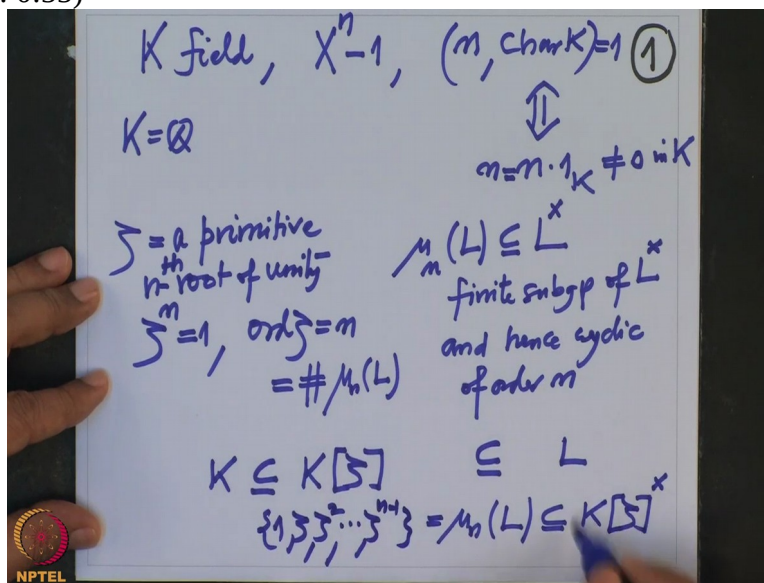 : 0:55)
K field, Xⁿ-1, (n, Char K)=1 ①
⇕
K=ℚ
n=n·1_K ≠ 0 in K
ζ = a primitive
nᵗʰ root of unity
ζⁿ=1, ord ζ = n
= # μₙ(L)
μₙ(L) ⊆ Lˣ
finite subgp of Lˣ
and hence cyclic
of order n
K ⊆ K[ζ] ⊆ L
{1, ζ, ζ², ..., ζⁿ⁻¹} = μₙ(L) ⊆ K[ζ]ˣ
NPTEL